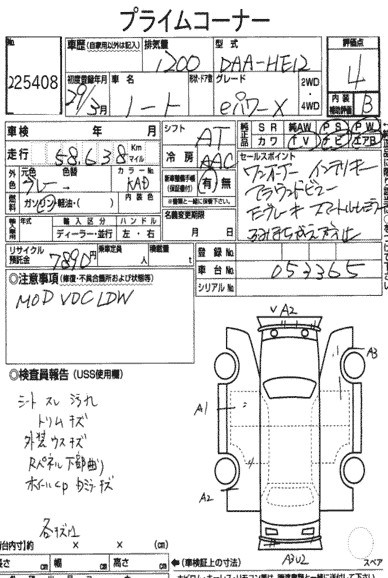 プライムコーナー
No.
225408
車歴 (自家用以外は記入)
排気量
1200
型式
DAA-HE12
評価点
4
初度登録年月
29年
3月
車名
ノート
形状・ドア数
グレード
eパワーX
2WD
・
4WD
内装
補助評価
B
車検 年 月
走行 58,638 Km
マイル
外色 元色 色替
グレー→
カラーNo.
KAD
内装色
燃料 ガソリン・軽油・( )
輸入車用 年式 輸入区分 ハンドル
ディーラー・並行 左・右
シフト
AT
冷房
AAC
新車整備手帳
(保証書付)
有・無
※整備と一緒に保管下さい。
名義変更期限
月 日
純正品 SR 純AW PS PW
カワ TV ナビ エアB
セールスポイント
ワンオーナー インテリキー
アラウンドビュー
Eブレーキ スマートルームミラー
ふみまちがえ防止
リサイクル
預託金 7890円
乗車定員
人
積載量
t
登録No.
車台No. 053365
シリアルNo.
◎注意事項 (修復・不具合箇所および状態等)
MOD VDC LDW
◎検査員報告 (USS使用欄)
シート スレ 汚れ
トリム キズ
外装 ウスキズ
Rパネル 下部曲り
ホイールcp ガラミ キズ
各キズ
A2
A3
A1
A2
AU2
荷台内寸】約 × × (cm)
長さ cm 幅 cm 高さ cm
◀(車検証上の寸法)
スペア